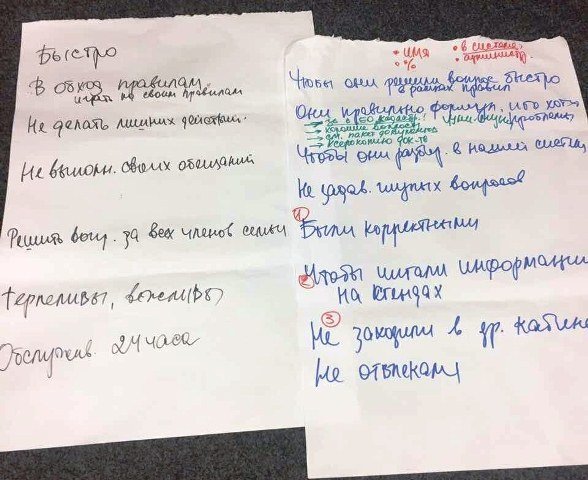 Быстро
В обход правилам.
играть по своим правилам
Не делать лишних действий.
Не выполн. своих обещаний
Решить вопр. за всех членов семьи
терпеливы, вежливы
Обслужив. 24 часа
• имя
• %
• в системе
• администр.
Чтобы они решили вопрос быстро
в рамках правил
Они правильно формул, чего хотят
хорошие вопросы
пакет документов
ксерокопию док-тв
проблемы
Чтобы они разбир. в нашей систем
Не задав. глупых вопросов
① Были корректными
② Чтобы читали информацию
на стендах
③
Не заходили в др. кабине
Не отвлекали